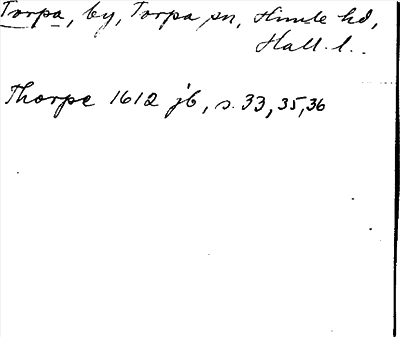 Torpa, by, Torpa sn, Himle hd,
Hall. l..
Thorpe 1612 jb, s. 33, 35, 36